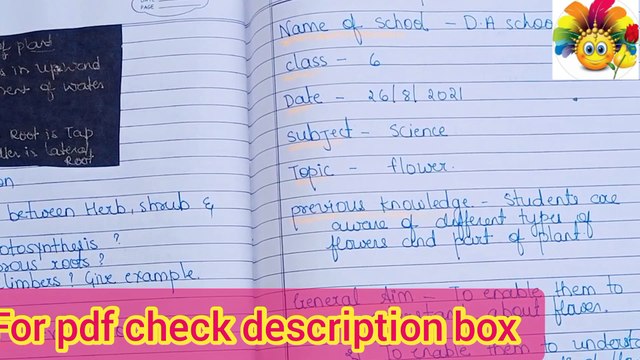 DATE
PAGE
of plant
in upward
ment of water
Root is Tap
is lateral
Root
between Herb, shrub &
otosynthesis ?
rous roots ?
limbers ? Give example.
Name of school - D.A schoo
class - 6
Date - 26/8/2021
subject - science
Topic - flower.
previous knowledge - students are
aware of different types of
flowers and part of plant
General Aim - To enable them to
about flower.
To enable them to understa
For pdf check description box